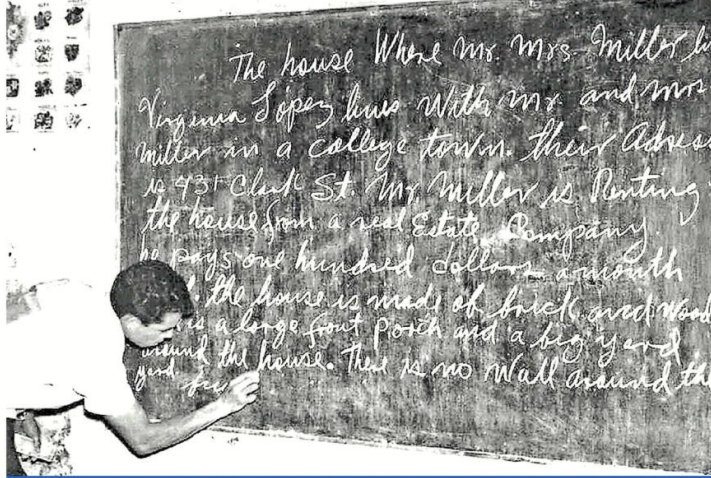 The house Where Mr. Mrs. Miller li
Virginia López lives With Mr. and Mrs
Miller in a college town. their Adress
is 931 Clark St. Mr Miller is Renting
the house from a real Estate Company
he pays one hundred dollars a month
the house is made of brick and Wood
is a large front porch and a big yard
around the house. There is no Wall around the
yard